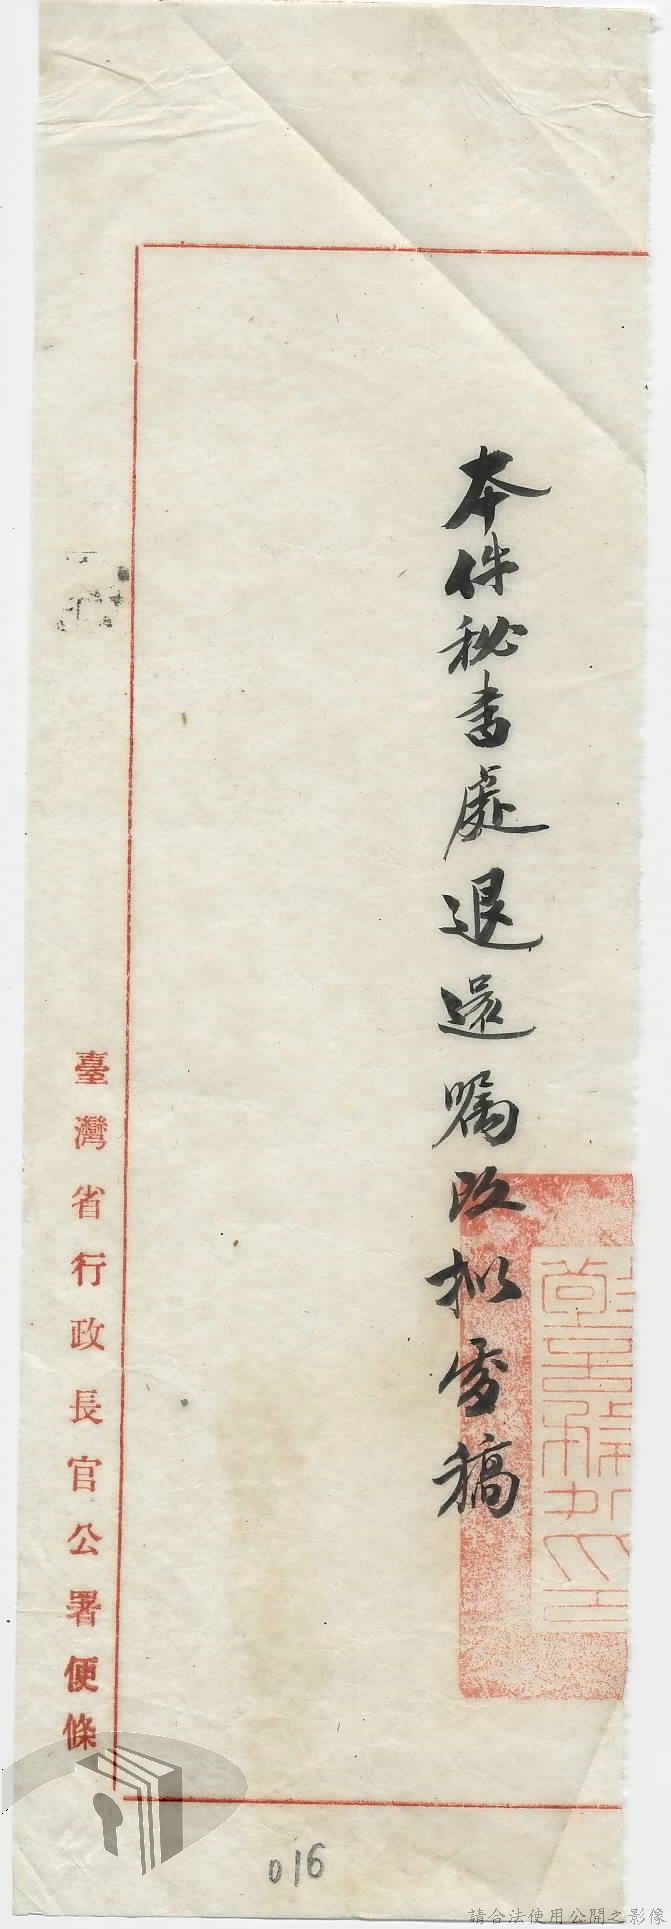 本件秘書處退還嘱改拟電稿
臺灣省行政長官公署便條
016
請合法使用公開之影像